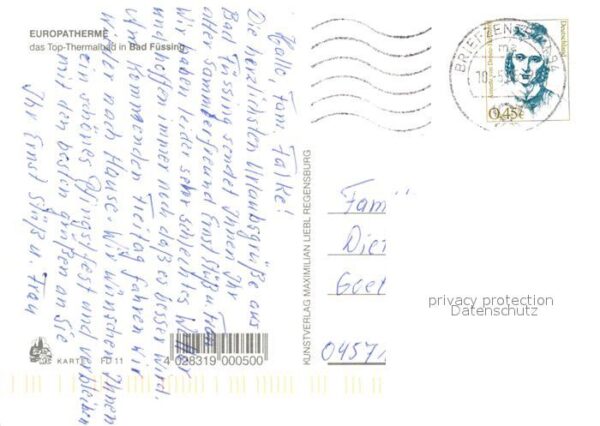 EUROPATHERME
das Top-Thermalbad in Bad Füssing
Hallo, Fam. Falke!
Die herzlichsten Urlaubsgrüße aus
Bad Füssing sendet Ihnen Ihr
alter Sammlerfreund Ernst Stüß u. Frau
Wir haben leider sehr schlechtes Wetter
und hoffen immer noch daß es besser wird.
Am kommenden Freitag fahren wir
wieder nach Hause. Wir wünschen Ihnen
ein schönes Pfingstfest und verbleiben
mit den besten Grüßen an Sie
Ihr Ernst Stüß u. Frau
KARTE FÜ 11
4 028319 000500
KUNSTVERLAG MAXIMILIAN LIEBL REGENSBURG
BRIEFZENTRUM
Deutschland
0,45€
Fami
Diet
Goet
privacy protection
Datenschutz
04571